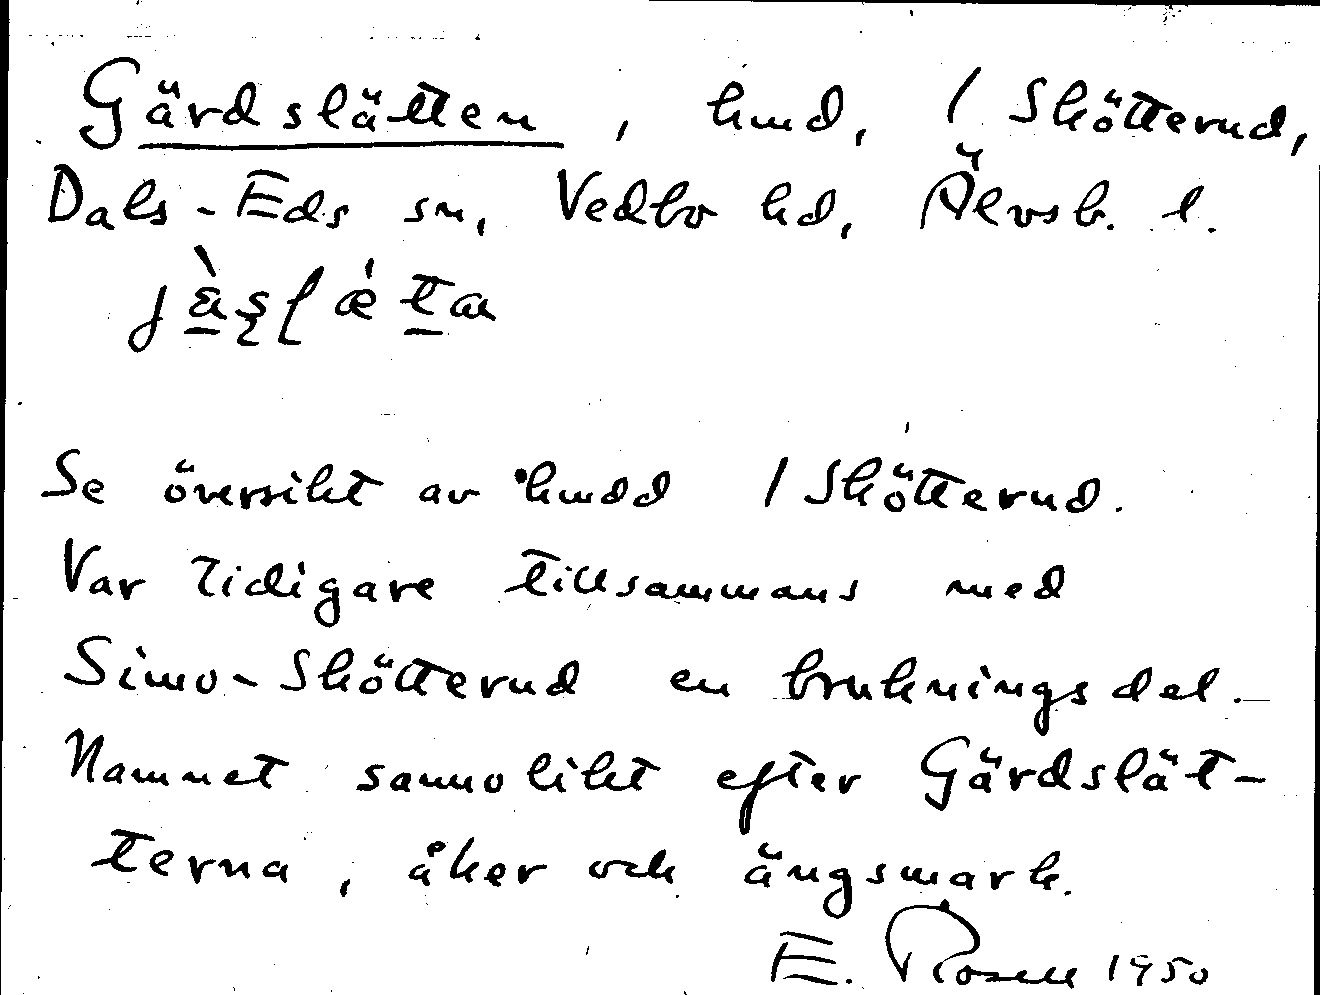 Gärdslätten, hmd, / Skötterud,
Dals-Eds sn, Vedbo hd, Älvsb. l.
Se översikt av hmdd / Skötterud.
Var tidigare tillsammans med
Simo-Skötterud en brukningsdel.
Namnet sannolikt efter Gärdslät-
terna, åker och ängsmark.
E. Rosell 1950